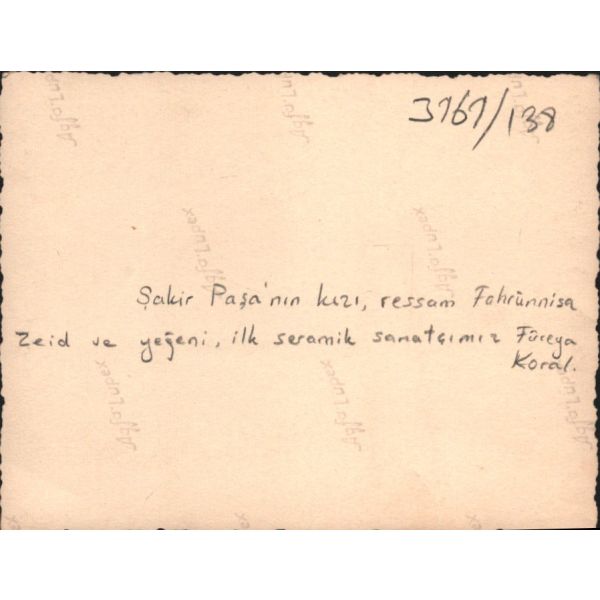 Agfa Lupex
Agfa Lupex
3767/138
Agfa Lupex
Agfa Lupex
Şakir Paşa'nın kızı, ressam Fahrünnisa
Zeid ve yeğeni, ilk seramik sanatçımız Füreya
Koral.
Agfa Lupex
Agfa Lupex
Agfa Lupex